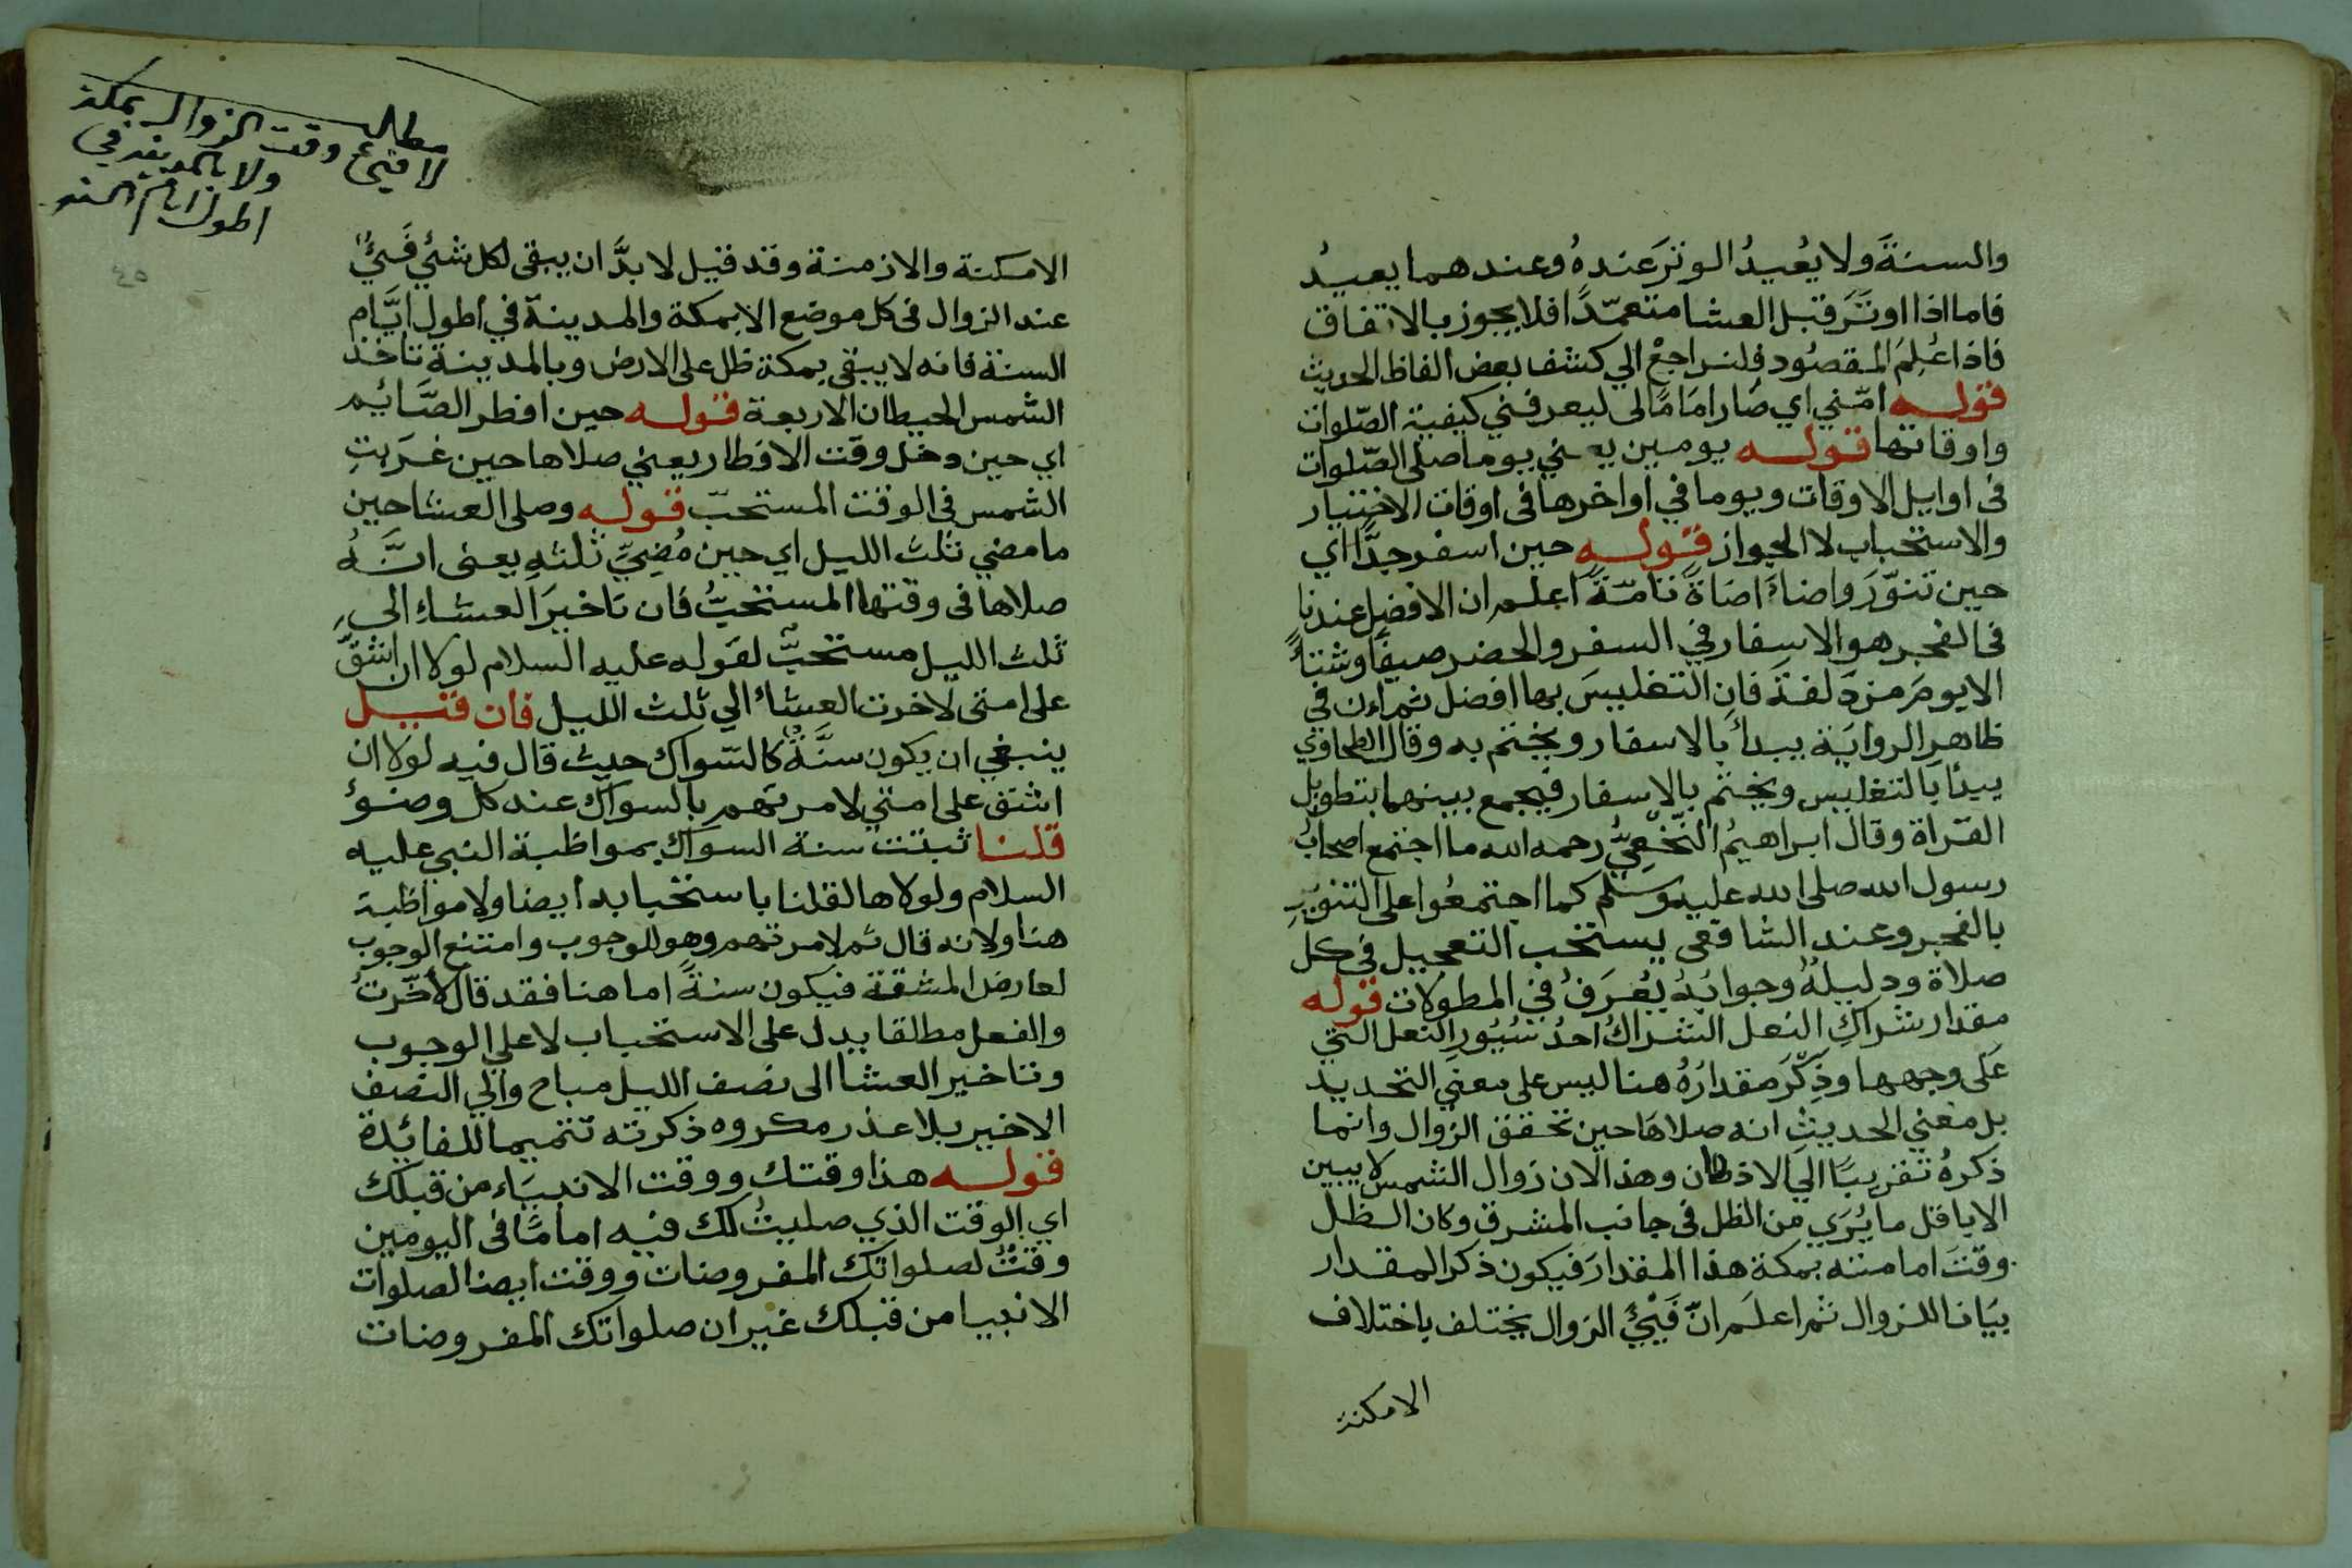 والسنةَ ولا يُعيدُ الوترَ عندهُ وعندهما يعيدُ
فاما اذا اوتَرَ قبل العشا متعمّدًا فلا يجوز بالاتفاق
فاذا عُلِمَ المقصُود فلنراجعْ الي كشف بعض الفاظ الحديث
قوله امّني اي صَار امَامًا لى ليعرفني كيفية الصّلوات
واوقاتها قوله يومين يعني يوما صلى الصّلوات
فى اوايل الاوقات ويوما في اواخرها فى اوقات الاختيار
والاستحباب لا الجواز قوله حين اسفر جدًّا اي
حين تنوّرَ واضاءَ اضاةً تامّةً اعلم ان الافضل عندنا
فى الفجر هو الاسفار في السفر والحضر صيفًا وشتاً
الا يومَ مزدَلفةَ فان التغليسَ بها افضل ثم اءن في
ظاهر الروايَة يبدأ بالاسفار ويختم به وقال الطحاوي
يبدأ بالتغليس ويختم بالاسفار فيجمع بينهما بتطويل
القرَاة وقال ابراهيمُ النّخْعِيُّ رحمه الله ما اجتمع اصحابُ
رسول الله صلى الله عليه وسلم كما اجتمعُوا على التنوّيرِ
بالفجر وعند الشافعى يستحب التعجيل في كل
صلاة ودليلهُ وجوابُهُ يُعْرَفُ في المطولات قوله
مقدار شراكِ النعل الشراكُ احدُ سُيُورِ النعل التي
عَلى وجهها وذِكْرَ مقدارُهُ هنا ليس على معني التحديد
بل معني الحديثِ انه صلاهَا حين تحقق الزوال وانما
ذكرهُ تقريبًا الي الاذهان وهذا لان زوال الشمس لا يبين
الا باقل ما يُرَي من الظل فى جانب المشرق وكان الظل
وقتَ امامته بمكة هذا المقدارَ فيكون ذكر المقدار
بيَانا للزوال ثم اعلَم انّ فَيْئَ الزوال يختلف باختلاف
الامكنة
مطلب
لا فيئ وقت الزوال بمكة
ولا بالمدينة في
اطول ايام السنة
٤٥
الامكنة والازمنة وقد قيل لا بدَّ ان يبقى لكل شئي فَيْئٌ
عند الزوال فى كل موضع الا بمكة والمدينة في اطول ايَّام
السنة فانه لا يبقى بمكة ظل على الارض وبالمدينة تاخذ
الشمس الحيطان الاربعة قوله حين افطر الصَّائيم
اي حين دخل وقت الافطار يعني صلاها حين غرَبتِ
الشمس فى الوقت المستحبّ قوله وصلى العشا حين
ما مضي ثلث الليل اي حين مُضِيِّ ثلثهِ يعنى انَّهُ
صلاها فى وقتها المستحبُّ فان تاخيرَ العشاءِ الى
ثلث الليل مستحبٌّ لقوله عليه السلام لولا ان اشقَّ
على امتى لاخرت العشاء الي ثلث الليل فان قيل
ينبغي ان يكون سنَّةً كالسّواك حيث قال فيه لولا ان
اشق على امتي لامرتهم بالسواك عند كل وضوءٍ
قلنا ثبتت سنة السواك بمواظبة النبي عليه
السلام ولولاها لقلنا باستحبابه ايضا ولا مواظبة
هنا ولانه قال ثم لامرتهم وهو للوجوب وامتنع الوجوب
لعارض المشقة فيكون سنةً اما هنا فقد قال لأخّرتُ
والفعل مطلقا يدل على الاستحباب لا على الوجوب
وتاخير العشا الى نصف الليل مباح والي النصف
الاخير بلا عذر مكروه ذكرته تتميما للفائدة
قوله هذا وقتك ووقت الانبيَاء من قبلك
اي الوقت الذي صليتُ لك فيه امامًا فى اليومين
وقتٌ لصلواتك المفروضات ووقت ايضا لصلوات
الانبيا من قبلك غير ان صلواتك المفروضات